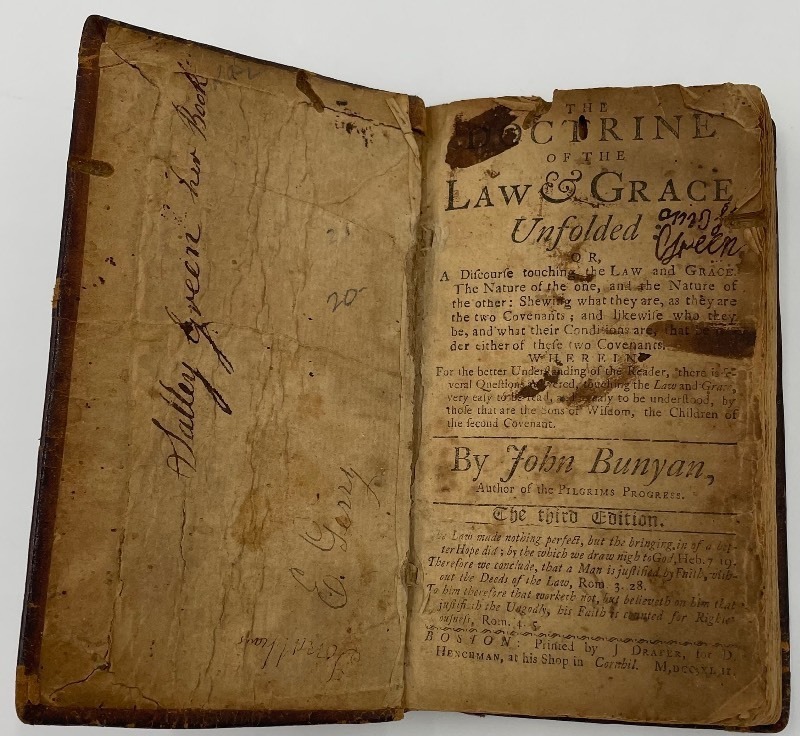 Salley Green her Book
20-
E. Gerry
THE
DOCTRINE
OF THE
LAW & GRACE
Unfolded
Green
OR,
A Diſcourſe touching the LAW and GRACE.
The Nature of the one, and the Nature of
the other: Shewing what they are, as they are
the two Covenants; and likewiſe who they
be, and what their Conditions are, that be
der either of theſe two Covenants.
WHEREIN
For the better Underſtanding of the Reader, there is
veral Queſtions touching the Law and
very eaſy to be read, and to be underſtood, by
thoſe that are the Sons of Wiſdom, the Children of
the ſecond Covenant.
By John Bunyan,
Author of the PILGRIMS PROGRESS.
The third Edition.
Law made nothing perfect, but the bringing in of a
ter Hope did; by the which we draw nigh to God, Heb. 7 19.
Therefore we conclude, that a Man is juſtified by Faith, with-
out the Deeds of the Law, Rom. 3. 28.
To him therefore that worketh not, but believeth on him that
juſtifieth the Ungodly, his Faith is counted for Righte-
ouſneſs, Rom. 4. 5.
BOSTON: Printed by J DRAPER, for D.
HENCHMAN, at his Shop in Cornhil.